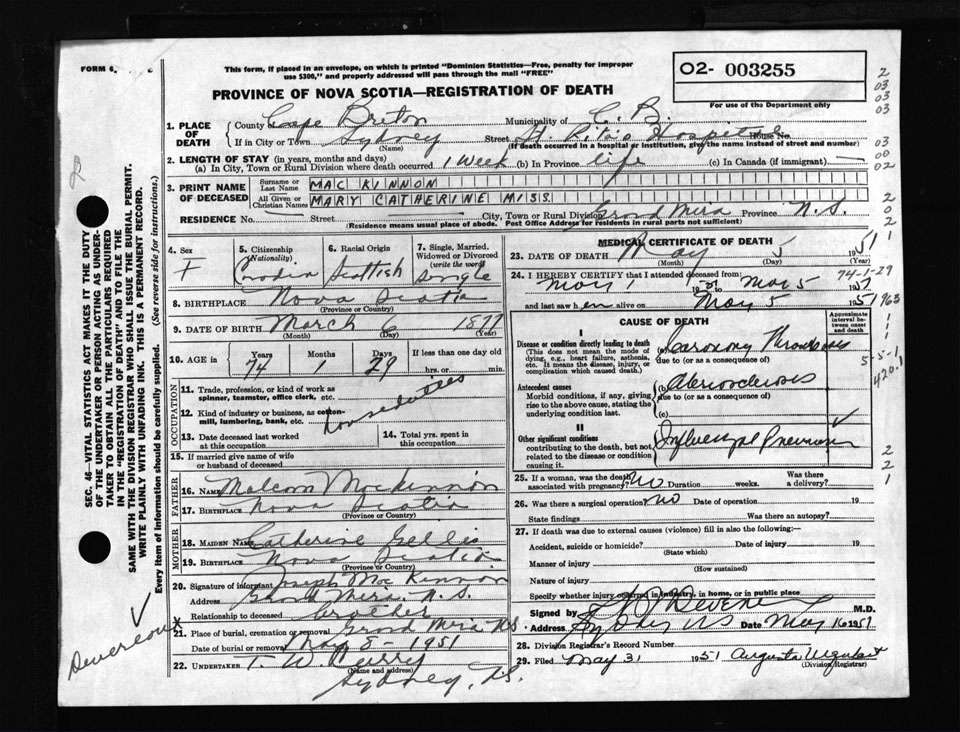 FORM 6,
This form, if placed in an envelope, on which is printed "Dominion Statistics—Free, penalty for improper
use $300," and properly addressed will pass through the mail "FREE"
O2- 003255
For use of the Department only
PROVINCE OF NOVA SCOTIA—REGISTRATION OF DEATH
1. PLACE OF DEATH
County of Cape Breton Municipality of C. B.
If in City or Town Sydney (Name) Street St. Rita's Hospital House No.
(If death occurred in a hospital or institution, give the name instead of street and number)
2. LENGTH OF STAY (in years, months and days)
(a) In City, Town or Rural Division where death occurred 1 week (b) In Province life (c) In Canada (if immigrant) —
3. PRINT NAME OF DECEASED
Surname or Last Name MAC KINNON
All Given or Christian Names MARY CATHERINE MISS.
RESIDENCE No. Street City, Town or Rural Division Grand Mira Province N.S.
(Residence means usual place of abode. Post Office Address for residents in rural parts not sufficient)
4. Sex F
5. Citizenship (Nationality)
6. Racial Origin Scottish
7. Single, Married, Widowed or Divorced (write the word) single
8. BIRTHPLACE Nova Scotia
(Province or Country)
9. DATE OF BIRTH March 6 1877
(Month) (Day) (Year)
10. AGE in Years 74 Months 1 Days 29 If less than one day old
hrs. or min.
OCCUPATION
11. Trade, profession, or kind of work as spinner, teamster, office clerk, etc.
12. Kind of industry or business, as cotton-mill, lumbering, bank, etc.
13. Date deceased last worked at this occupation
14. Total yrs. spent in this occupation
15. If married give name of wife or husband of deceased
FATHER
16. NAME Malcom MacKinnon
17. BIRTHPLACE Nova Scotia
(Province or Country)
MOTHER
18. MAIDEN NAME Catherine Gillis
19. BIRTHPLACE Nova Scotia
(Province or Country)
20. Signature of informant Joseph MacKinnon
Address Grand Mira, N.S.
Relationship to deceased brother
21. Place of burial, cremation or removal Grand Mira NS
Date of burial or removal May 8 1951
22. UNDERTAKER T. W. Curry
(Name and Address)
Sydney, NS.
MEDICAL CERTIFICATE OF DEATH
23. DATE OF DEATH May 5 1951
(Month) (Day) (Year)
24. I HEREBY CERTIFY that I attended deceased from:
May 1 1951 to May 5 1951
and last saw her alive on May 5 1951
74-1-29
963
CAUSE OF DEATH
Approximate interval between onset and death
I
Disease or condition directly leading to death
(This does not mean the mode of dying, e.g., heart failure, asthenia, etc. It means the disease, injury, or complication which caused death.)
(a) Coronary Thrombosis
due to (or as a consequence of)
5-5-1
420.1
Antecedent causes
Morbid conditions, if any, giving rise to the above cause, stating the underlying condition last.
(b) Arteriosclerosis
due to (or as a consequence of)
(c)
II
Other significant conditions
contributing to the death, but not related to the disease or condition causing it.
Influenzal Pneumonia
25. If a woman, was the death associated with pregnancy? No Duration weeks. Was there a delivery?
26. Was there a surgical operation? No Date of operation 19
State findings Was there an autopsy?
27. If death was due to external causes (violence) fill in also the following:—
Accident, suicide or homicide? Date of injury 19
(State which)
Manner of injury
(How sustained)
Nature of injury
Specify whether injury occurred in industry, in home, or in public place
Signed by Devereux M.D.
Address Sydney NS Date May 16 1951
28. Division Registrar's Record Number
29. Filed May 31 1951 Augusta Urquhart
(Division Registrar)
SEC. 46—VITAL STATISTICS ACT MAKES IT THE DUTY
OF THE UNDERTAKER OR PERSON ACTING AS UNDER-
TAKER TO OBTAIN ALL THE PARTICULARS REQUIRED
IN THE "REGISTRATION OF DEATH" AND TO FILE THE
SAME WITH THE DIVISION REGISTRAR WHO SHALL ISSUE THE BURIAL PERMIT.
WRITE PLAINLY WITH UNFADING INK. THIS IS A PERMANENT RECORD.
Every item of information should be carefully supplied. (See reverse side for instructions.)
Devereaux